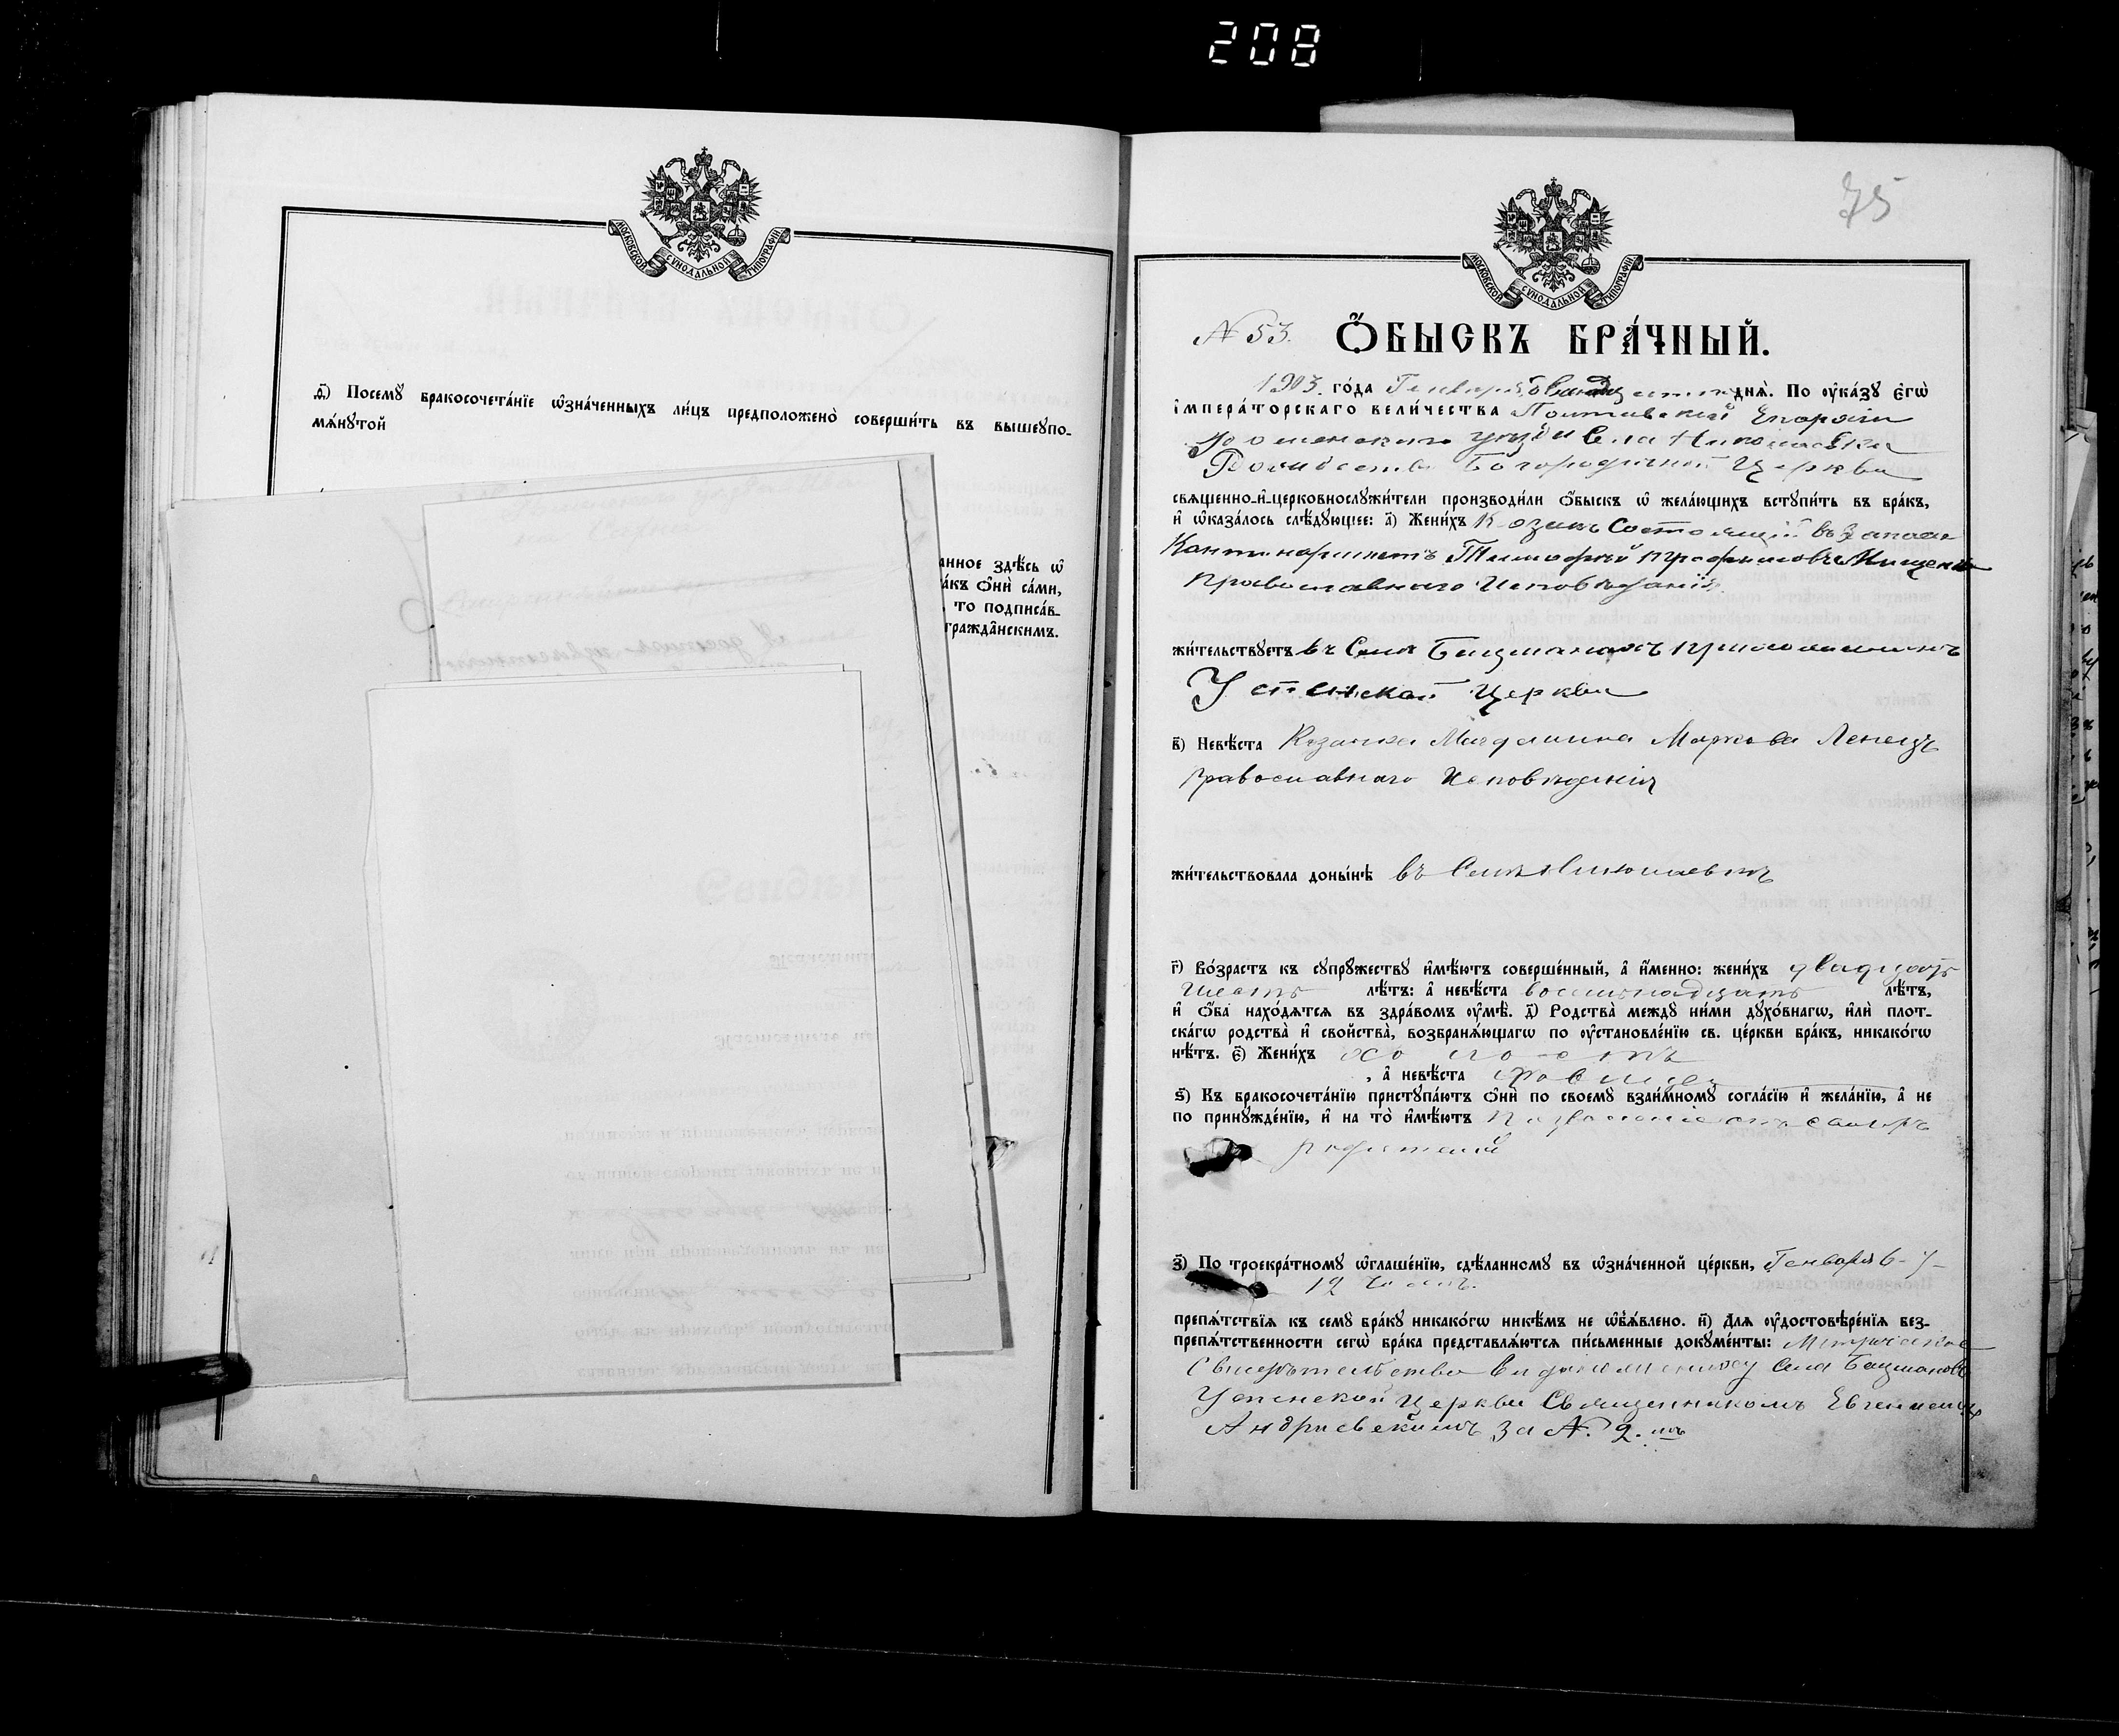 208
МОСКОВСКОЙ СѴНОДАЛЬНОЙ ТИПОГРАФІИ
д҃) Посемꙋ бракосочета́нїе ѡ҆зна́ченныхъ ли́цъ предположено̀ соверши́ть въ вышеꙋпо-
мѧ́нꙋтой
анное здѣ́сь ѡ
а́къ ѻ҆нѝ са́ми,
, то подписа́в-
гражда̂нскимъ.
75
МОСКОВСКОЙ СѴНОДАЛЬНОЙ ТИПОГРАФІИ
N 53. Ѻ҆БЫСКЪ БРА́ЧНЫЙ.
1903. го́да Генваря дня̀. По ᲂу҆ка́зꙋ є҆гѡ̀
і҆мпера́торскаго вели́чества Полтавской Епархіи
Роменскаго уѣзда Села Николаевки
Рождества Богородичной Церкви
свѧще́нно-и҆-церковнослꙋжи́тели производи́ли ѻ҆́быскъ ѡ҆ жела́ющихъ встꙋпи́ть въ бра́къ,
и҆ ѡ҆каза́лось слѣ́дꙋющее: а҃) Жени́хъ Козакъ Состоящій въ Запасе
Тимофѣй Трофимовъ Ищенко
Православнаго Исповѣданія
жи́тельствꙋетъ въ Селѣ Бацманахъ
Успенской Церкви
в҃) Невѣ́ста Козачка Магдалина Маркова Ленецъ
Православнаго Исповѣданія
жи́тельствовала доны́нѣ въ Селѣ Николаевкѣ
г҃) Во́зрастъ къ сꙋпрꙋ́жествꙋ и҆мѣ́ютъ соверше́нный, а҆ и҆́менно: жени́хъ двадцать
шесть лѣ́тъ: а҆ невѣ́ста восемнадцать лѣ́тъ,
и҆ ѻ҆́ба нахо́дѧтсѧ въ здра́вомъ ᲂу҆мѣ̀. д҃) Родства̀ междꙋ̀ ни́ми дꙋхо́внагѡ, и҆лѝ плот-
ска́гѡ родства̀ и҆ сво́йства̀, возбранѧ́ющагѡ по ᲂу҆становле́нїю св. це́ркви бра́къ, никако́гѡ
нѣ́тъ. є҃) Жени́хъ холостъ
, а҆ невѣ́ста дѣвица
ѕ҃) Къ бракосочета́нїю пристꙋпа́ютъ ѻ҆нѝ по своемꙋ̀ взаи́мномꙋ согла́сїю и҆ жела́нїю, а҆ не
по принꙋжде́нїю, и҆ на то̀ и҆мѣ́ютъ
родителей
з҃) По троекра́тномꙋ ѡ҆глаше́нїю, сдѣ́ланномꙋ въ ѡ҆зна́ченной це́ркви, Генваря 6-7-
12 чиселъ.
препѧ́тствїѧ къ семꙋ̀ бра́кꙋ никако́гѡ никѣ́мъ не ѡ҆б̾ѧ́влено. и҃) Для ᲂу҆достовѣре́нїѧ без-
препѧ́тственности сегѡ̀ бра́ка представлѧ́ютсѧ пи́сьменные докꙋме́нты: Метрическое
Свидѣтельство выданное жениху Села Бацмановъ
Успенской Церкви Священникомъ Евгеніемъ
Андріевскимъ за N. 2.